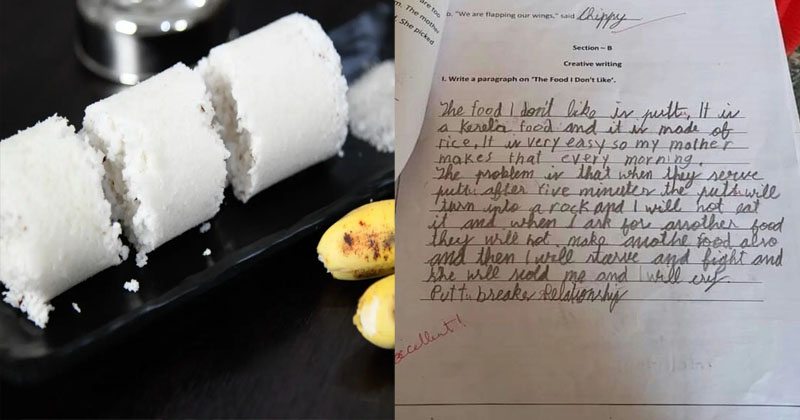 are too
m. The mother
She picked
b. "We are flapping our wings," said Chippy
Section – B
Creative writing
I. Write a paragraph on 'The Food I Don't Like'.
The food I don't like is puttu, It is
a Kerela food and it is made of
rice, It is very easy so my mother
makes that every morning.
The problem is that when they serve
puttu after five minutes the puttu will
turn into a rock and I will not eat
it and when I ask for another food
they will not make anothe food also
and then I will starve and fight and
she will scold me and I will cry.
Puttu breakes Relationship
excellent!